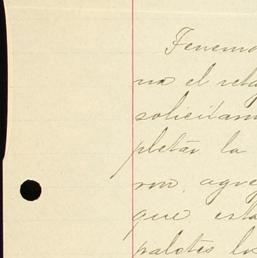 Tenemo
na el rela
solicitam
pletar la
ron, agre
que esta
palotes lo